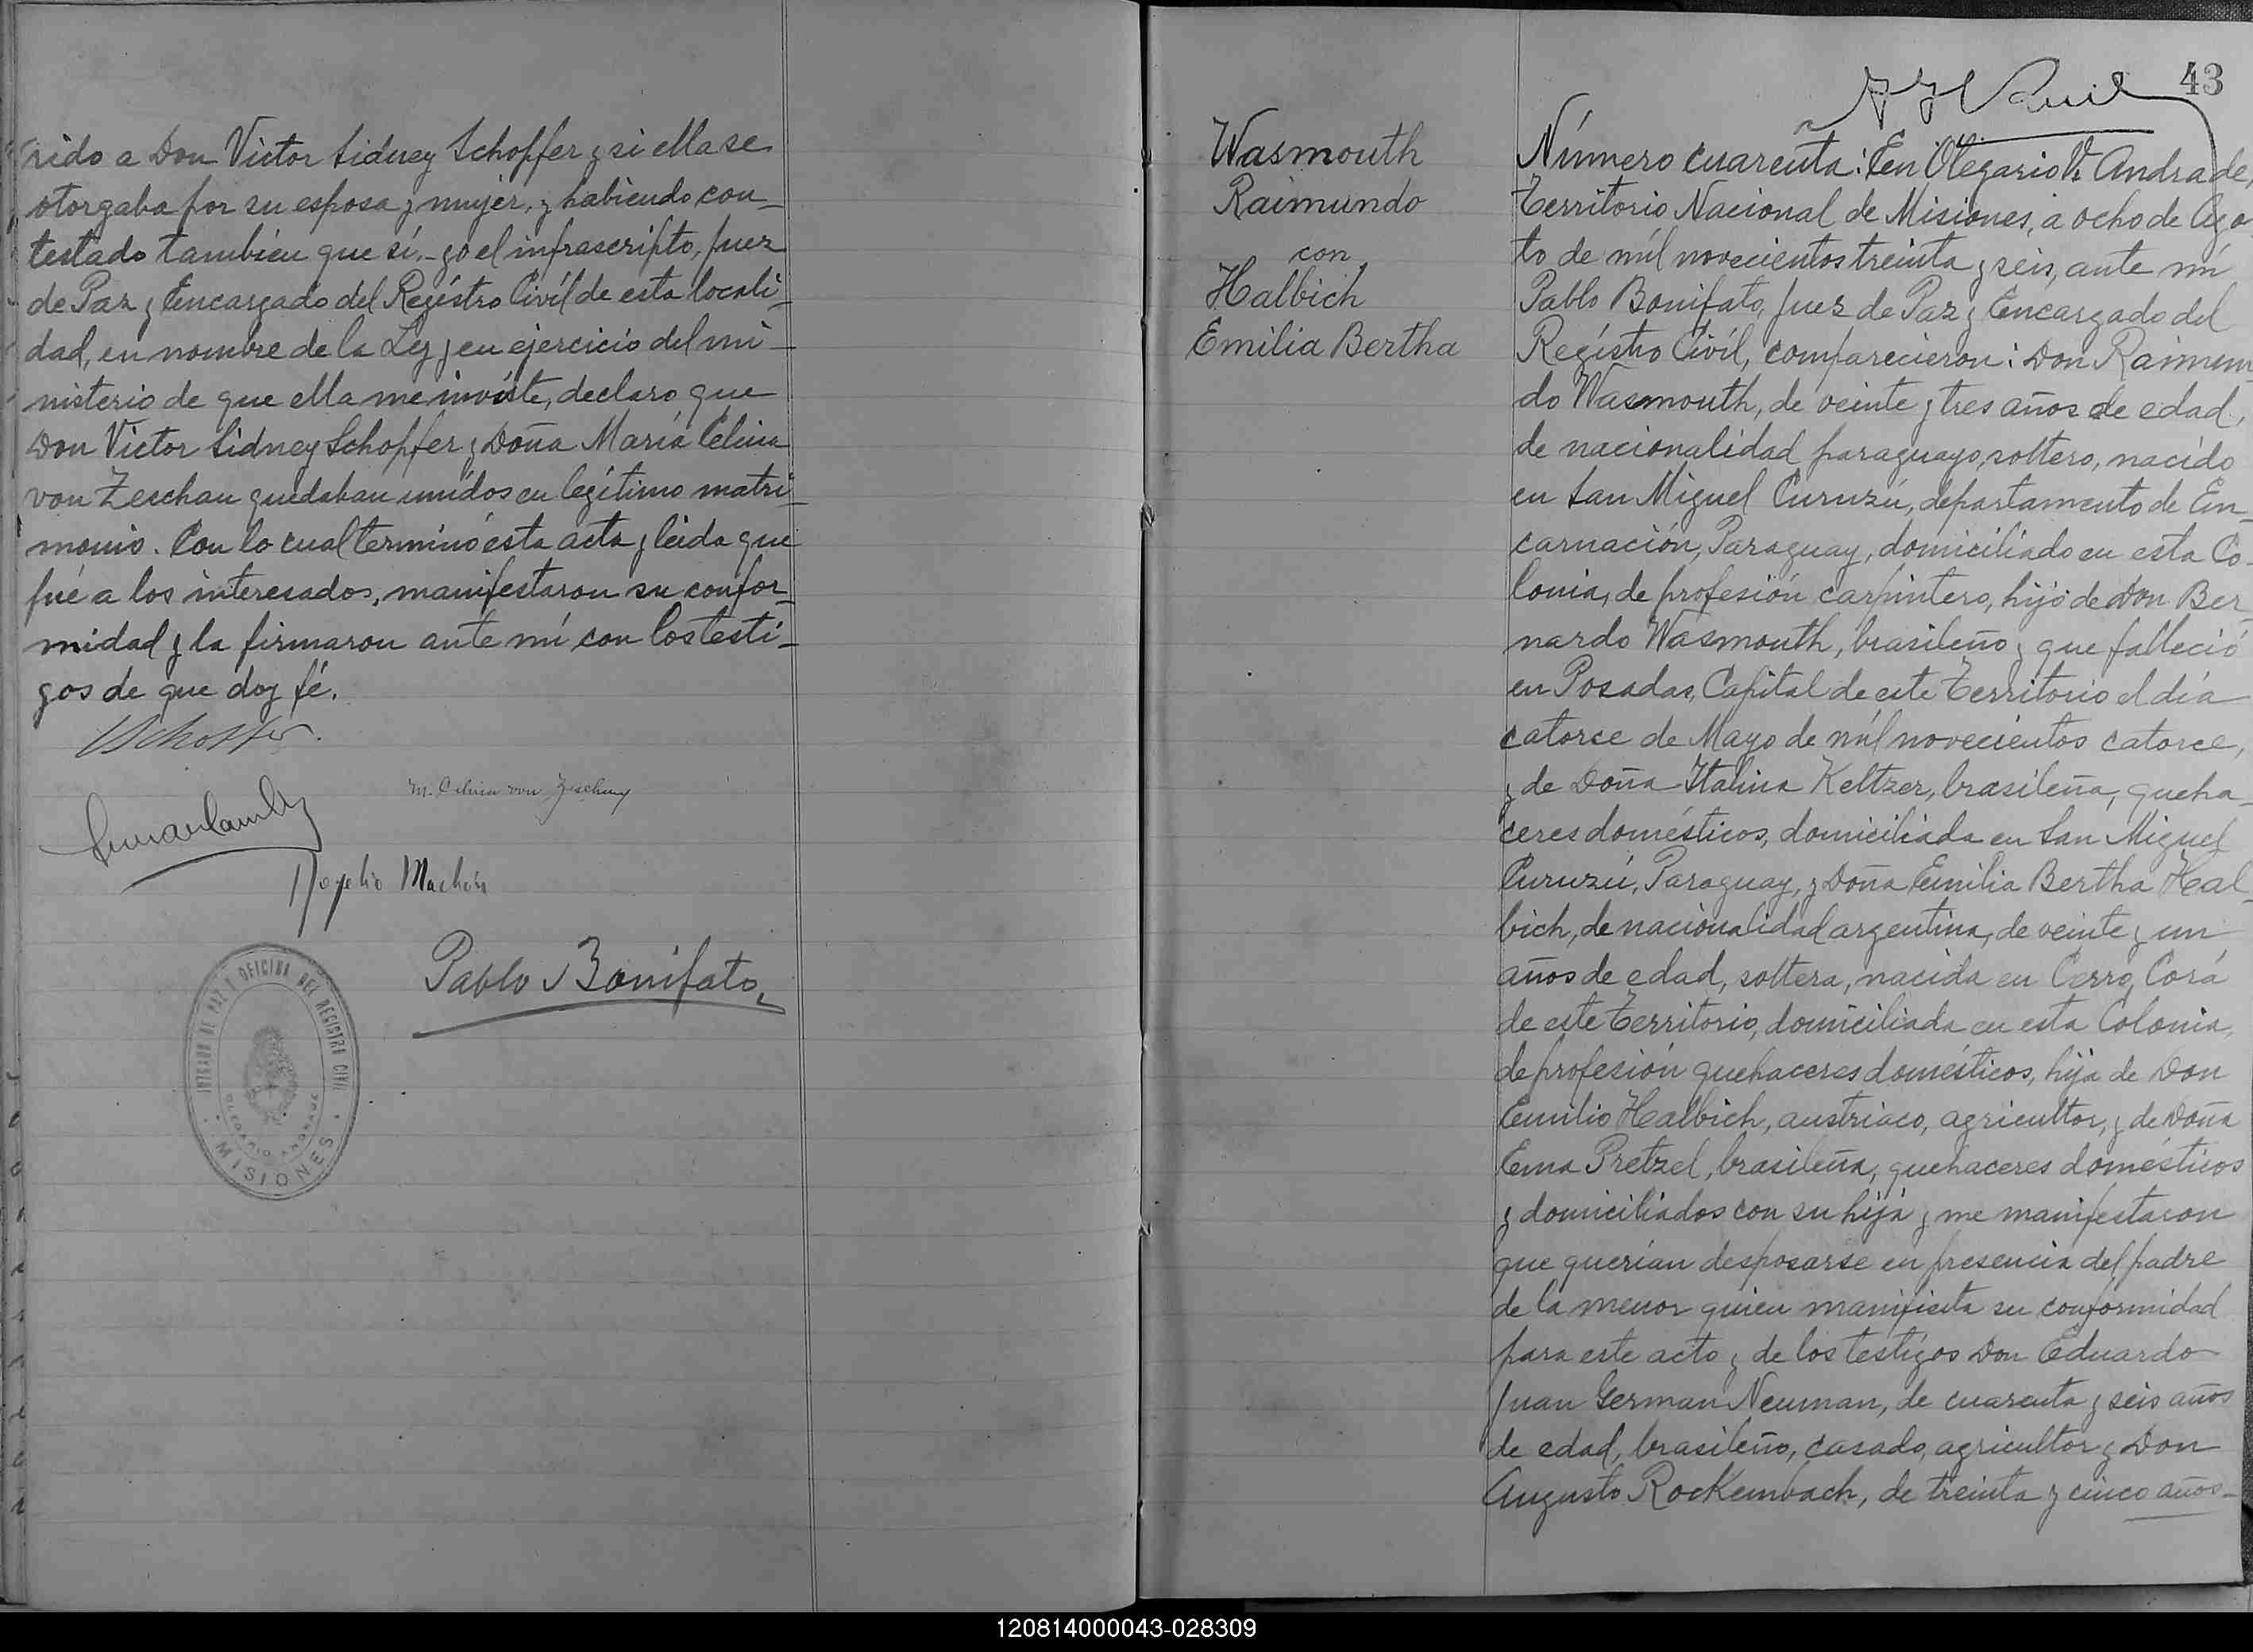 rido a Don Victor Sidney Schoffer y si ella se
otorgaba por su esposa y mujer, y habiendo con-
testado también que sí, yo el infrascripto, Juez
de Paz y Encargado del Registro Civíl de esta locali-
dad, en nombre de la Ley y en ejercicio del mi-
nisterio de que ella me inviste, declaro que
Don Victor Sidney Schopfer y Doña María Celina
von Zeschau quedaban unidos en legítimo matri-
monio. Con lo cual terminó ésta acta y leida que
fué a los interesados, manifestaron su confor-
midad y la firmaron ante mí con los testi-
gos de que doy fé.
M. Celina von Zeschau
Rogelio Machón
Pablo Bonifato
JUZGADO DE PAZ Y OFICINA DEL REGISTRO CIVIL
OLEGARIO ANDRADE
MISIONES
43
Wasmouth
Raimundo
con
Halbich
Emilia Bertha
Número cuarenta: En Olegario V. Andrade,
Territorio Nacional de Misiones, a ocho de Ago
to de mil novecientos treinta y seis, ante mí
Pablo Bonifato, Juez de Paz y Encargado del
Regístro Civíl, comparecieron: Don Raimun-
do Wasmouth, de veinte y tres años de edad,
de nacionalidad paraguayo, soltero, nacido
en San Miguel Curuzú, departamento de En-
carnación, Paraguay, domiciliado en esta Co-
lonia, de profesión carpintero, hijo de Don Ber-
nardo Wasmouth, brasileño y que falleció
en Posadas, Capital de este Territorio el día
catorce de Mayo de mil novecientos catorce,
y de Doña Italina Keltzer, brasileña, queha-
ceres domésticos, domiciliada en San Miguel
Curuzú, Paraguay, y Doña Emilia Bertha Hal-
bich, de nacionalidad argentina, de veinte y un
años de edad, soltera, nacida en Cerro Corá
de este Territorio, domiciliada en esta Colonia,
de profesión quehaceres domésticos, hija de Don
Emilio Halbich, austriaco, agricultor, y de Doña
Ema Pretzel, brasileña, quehaceres domésticos
y domiciliados con su hija y me manifestaron
que querían desposarse en presencia del padre
de la menor quien manifiesta su conformidad
para este acto y de los testigos Don Eduardo
Juan German Neuman, de cuarenta y seis años
de edad, brasileño, casado, agricultor y Don
Augusto Rockembach, de treinta y cinco años
120814000043-028309